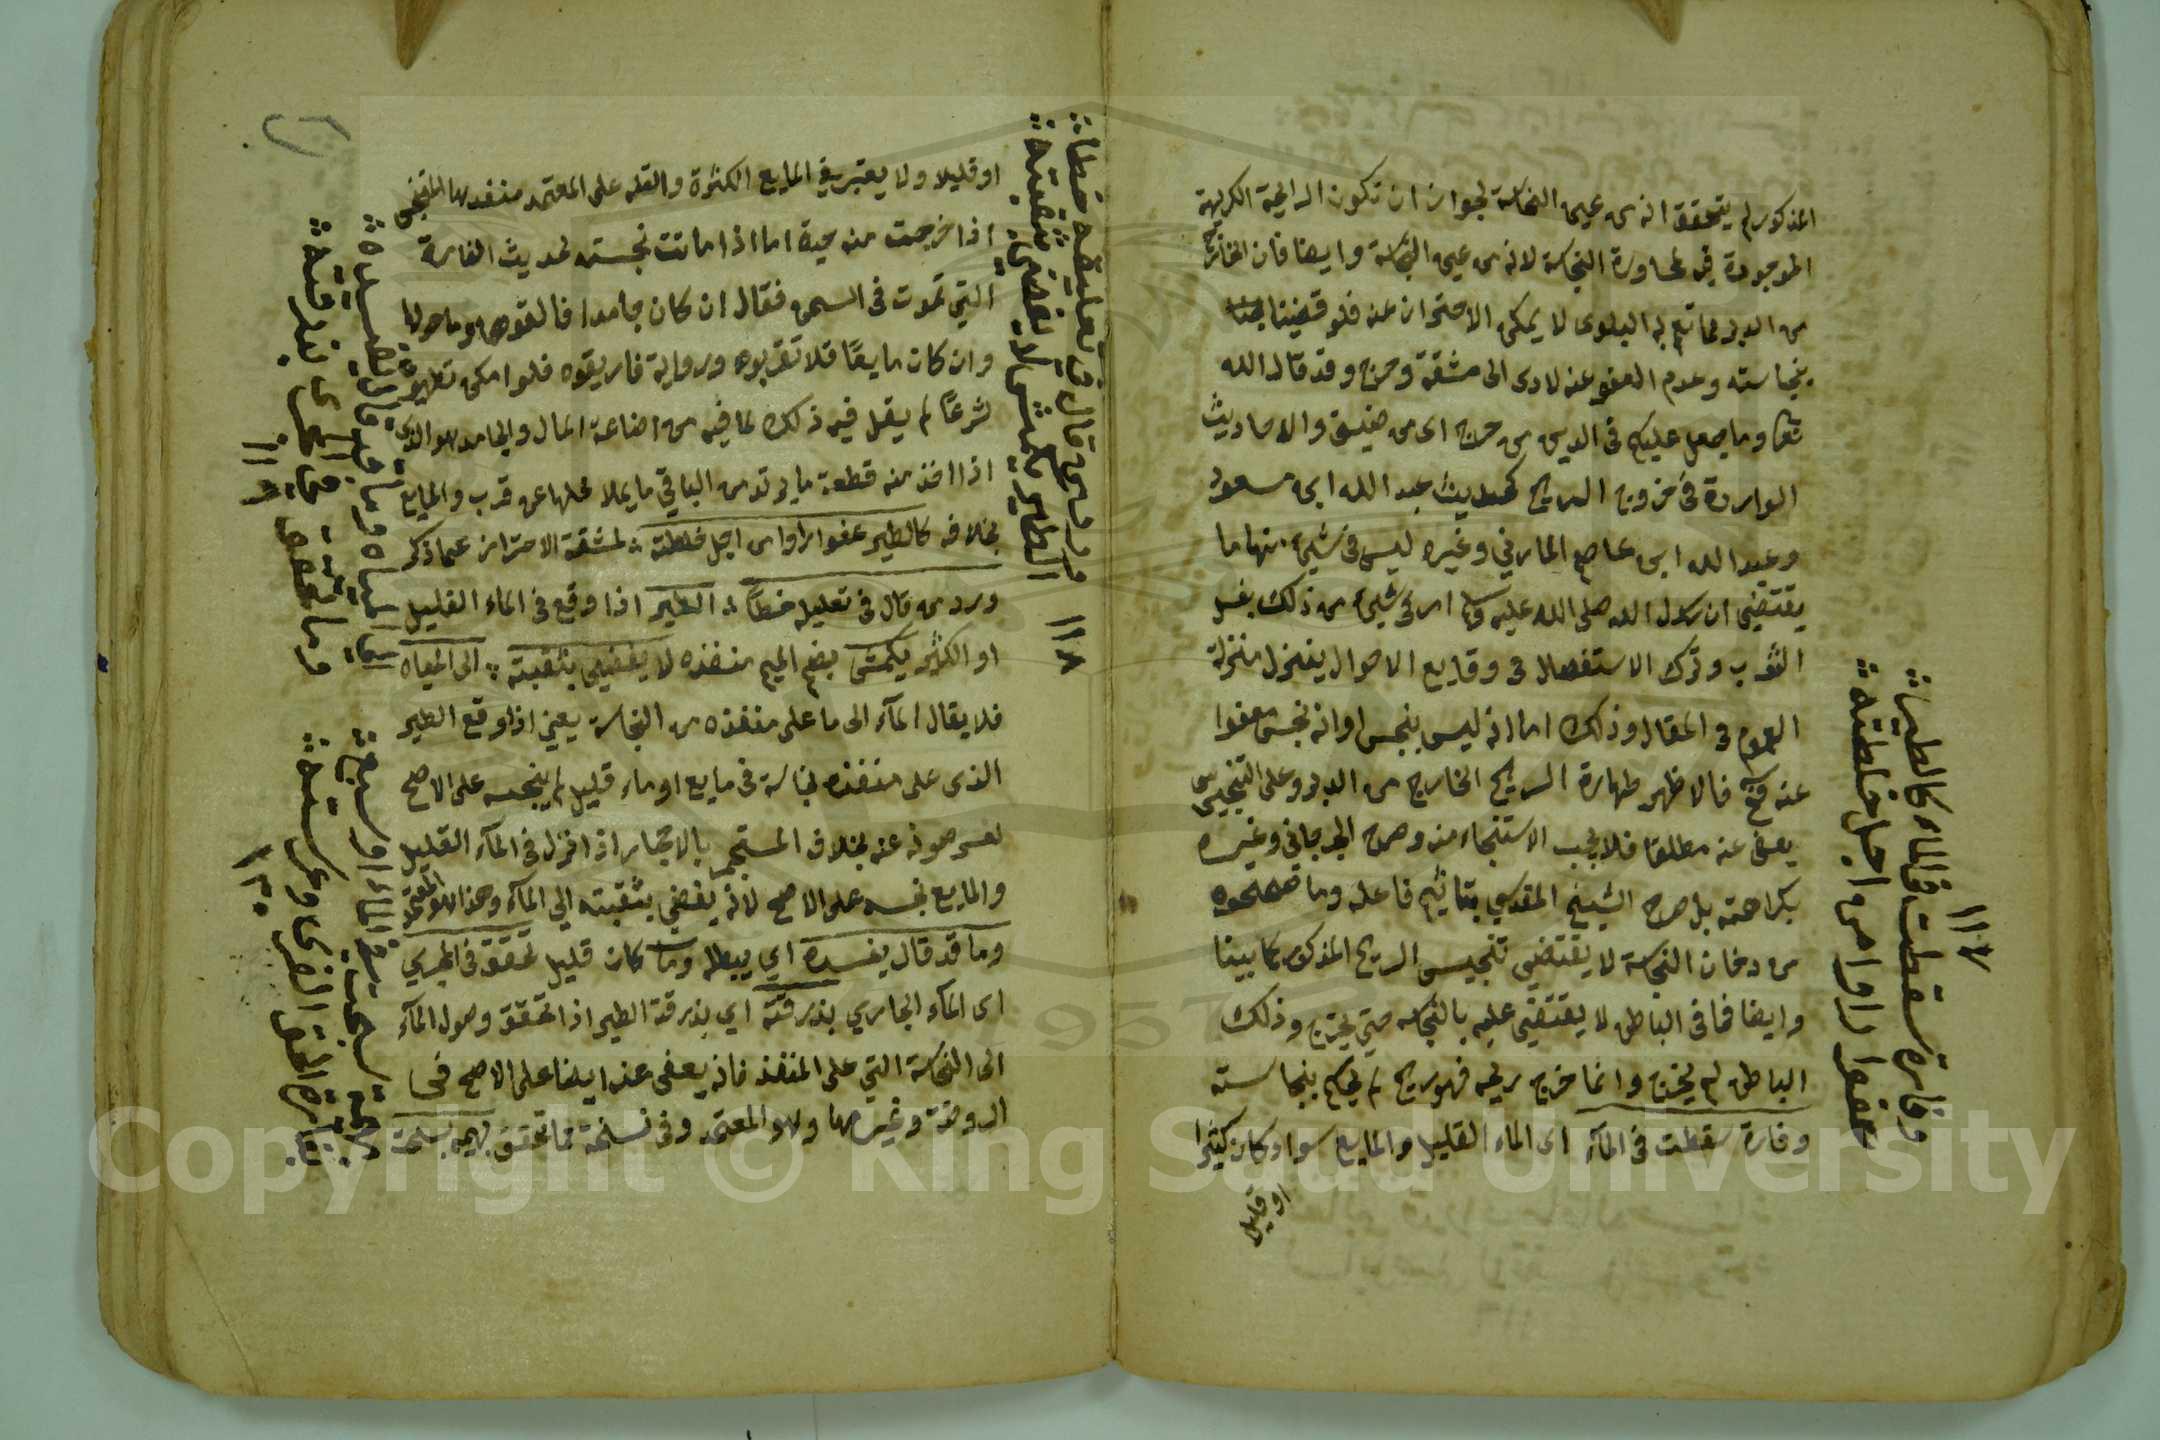 المذكور لم يتحقق انه من عين النجاسة لجواز ان تكون الرايحة الكريهة
الموجودة فيه لمجاورة النجاسة لا انه من عين النجاسة وايضا فان الخارج
من الدبر مما تعم به البلوى لا يمكن الاحتراز عنه فلو قضينا
بنجاسته وعدم العفو عنه لادى الى مشقة وحرج وقد قال الله
تعالى وما جعل عليكم في الدين من حرج اى من ضيق والاحاديث
الواردة في خروج الريح كحديث عبد الله ابن مسعود
وعبد الله ابن عاصم المازني وغيره ليس في شيء منها ما
يقتضي ان رسول الله صلى الله عليه وسلم امر في شيء من ذلك بغسل
الثوب وترك الاستفصال في وقايع الاحوال ينزل منزلة
العموم في المقال وذلك اما انه ليس بنجس او انه نجس معفوا
عنه فالاظهر طهارة الريح الخارج من الدبر وعلى التنجيس
يعفى عنه مطلقا فلا يجب الاستنجاء منه وصرح الجرجاني وغيره
بكراهته بل صرح الشيخ المقدسي بتاثيم فاعله وما صححوه
من دخان النجاسة لا يقتضي تنجيس الريح المذكور كما بينا
وايضا فما في الباطن لا يقتضى عليه بالنجاسه حتى يخرج وذلك
الباطن لم يخرج وانما خرج ريحه فهو ريح لم يحكم بنجاسته
وفارة سقطت في المآء اى الماء القليل والمايع سواء كان كثيرا
او قليلا
وفارة سقطت في الماء كالطير ⁘
عفوا راوا من اجل خلطته ⁘
١١٧
او قليلا ولا يعتبر في المايع الكثرة والقله على المعتمد منفذها المتنجس
اذا خرجت منه حية اما اذا ماتت نجسته لحديث الفارة
التي تموت في السمن فقال ان كان جامدا فالقوها وما حولها
وان كان مايعًا فلا تقربوه ورواية فاريقوه فلو امكن تطهيره
شرعًا لم يقل فيه ذلك لما فيه من اضاعة المال والجامد هو الذي
اذا اخذ منه قطعة ما يرتد من الباقي ما يملا محلها عن قرب والمايع
بخلافه كالطير عفوا راوا من اجل خلطته ⁖ لمشقة الاحتراز عما ذكر
ورد من قال في تعليله خطأ ⁖ الطير اذا وقع في الماء القليل
او الكثير يكمش بضم الميم منفذه لا يفضي بثقبته ⁖ الى المياه
فلا يقال المآء الى ما على منفذه من النجاسة يعني اذا وقع الطير
الذى على منفذه نجاسة في مايع او ماء قليل لم ينجسه على الاصح
لعسر صونه عنه بخلاف المستجمر بالاحجار اذا نزل في المآء القليل
والمايع نجسه على الاصح لانه يفضي بثقبته الي المآء وهذا هو المعتمد
وما قد قال يفسده اي يبطله وما كان قليل تحقق في الجري
اى المآء الجاري بذرقته اي بذرقة الطير اذا تحقق وصول المآء
الى النجاسة التي على المنفذ فانه يعفى عنه ايضا على الاصح في
الروضة وغيرها وهو المعتمد وفي نسخة فما تحقق بهيمة سبحت
ورد من قال في تعليله خطأ ⁘
الطير يكمش لا يفضي بثقبته ⁘
١١٨
الى المياه وما قد قال يفسده ⁘
وما تحقق في الجرى بذرقته ⁘
١١٩
بهيمة سبحت في الماء او سبح ⁘
١٢٠